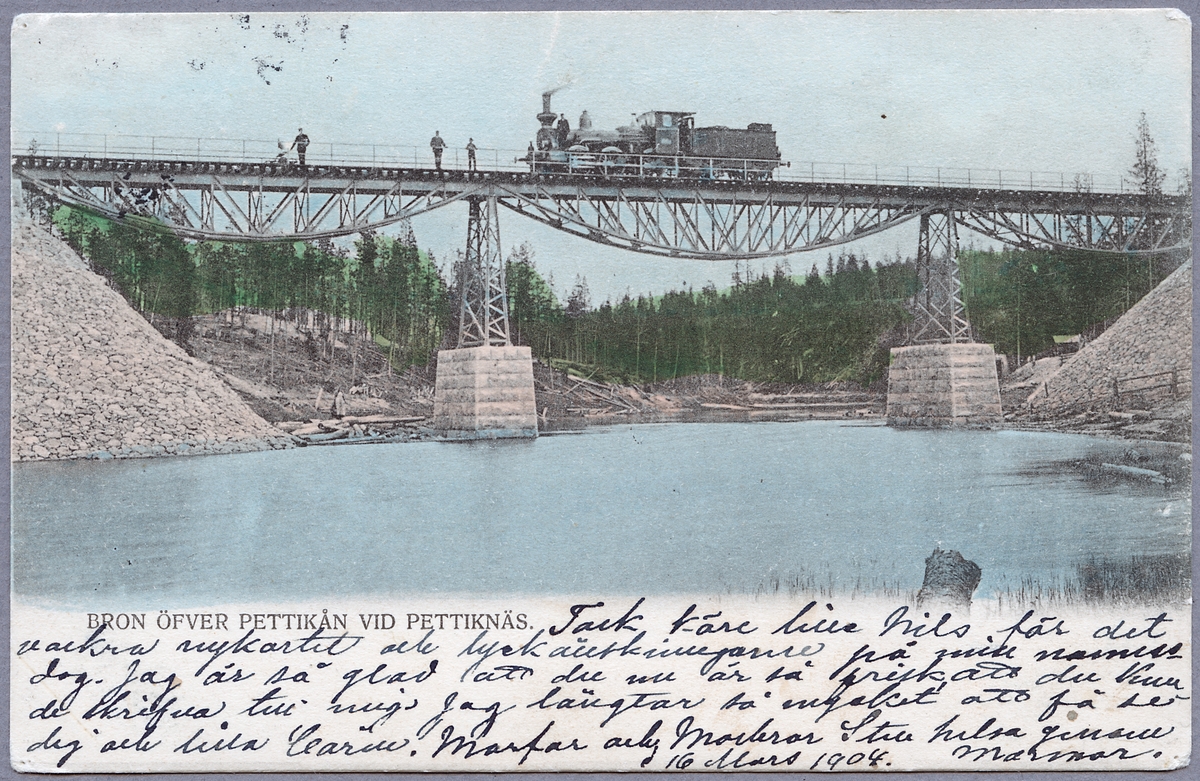 BRON ÖFVER PETTIKÅN VID PETTIKNÄS.
Tack käre lille Nils för det
vackra vykortet och lyckönskningarne på min namns-
dag. Jag är så glad att du nu är så frisk att du kun
de skrifva till mig. Jag längtar så mycket att få se
dig och lilla Carin. Morfar och Morbror Sten helsa genom
16 Mars 1904. Mormor.